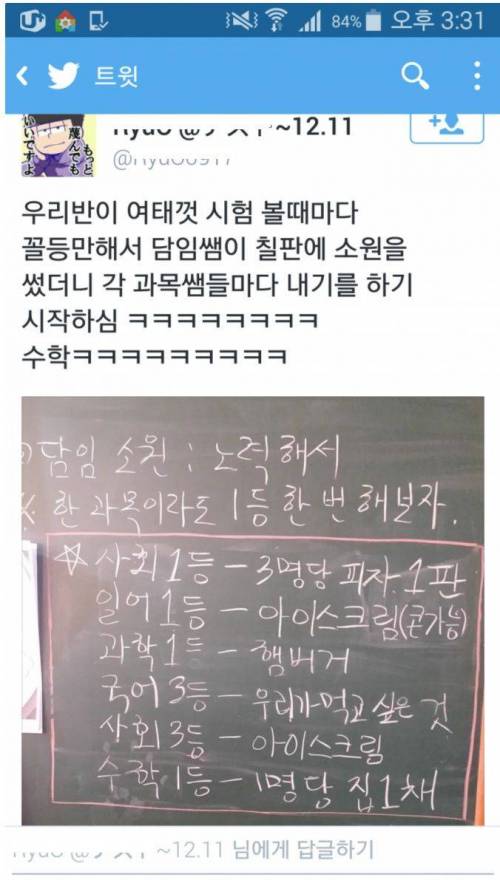 84% 오후 3:31
트윗
~12.11
우리반이 여태껏 시험 볼때마다
꼴등만해서 담임쌤이 칠판에 소원을
썼더니 각 과목쌤들마다 내기를 하기
시작하심 ㅋㅋㅋㅋㅋㅋㅋㅋ
수학ㅋㅋㅋㅋㅋㅋㅋㅋㅋ
담임 소원 : 노력해서
※ 한 과목이라도 1등 한 번 해보자.
☆ 사회 1등 - 3명당 피자 1판
일어 1등 - 아이스크림(콘가능)
과학 1등 - 햄버거
국어 3등 - 우리가 먹고 싶은 것
사회 3등 - 아이스크림
수학 1등 - 1명당 집 1채
~12.11 님에게 답글하기
もっと
蔑んでも
いいですよ